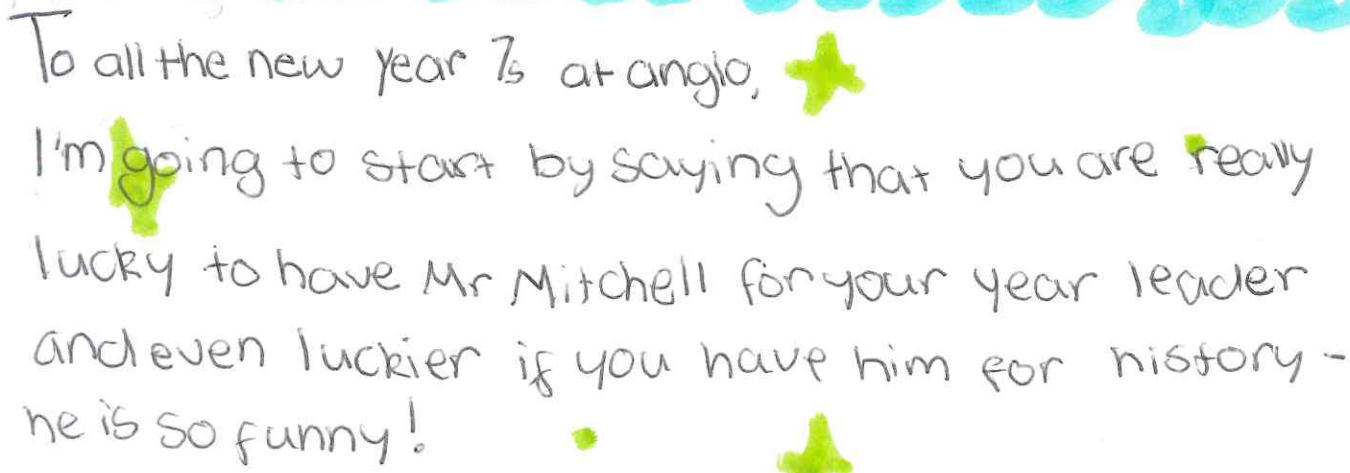 To all the new year 7s at anglo,
I'm going to start by saying that you are really
lucky to have Mr Mitchell for your year leader
and even luckier if you have him for history -
he is so funny!